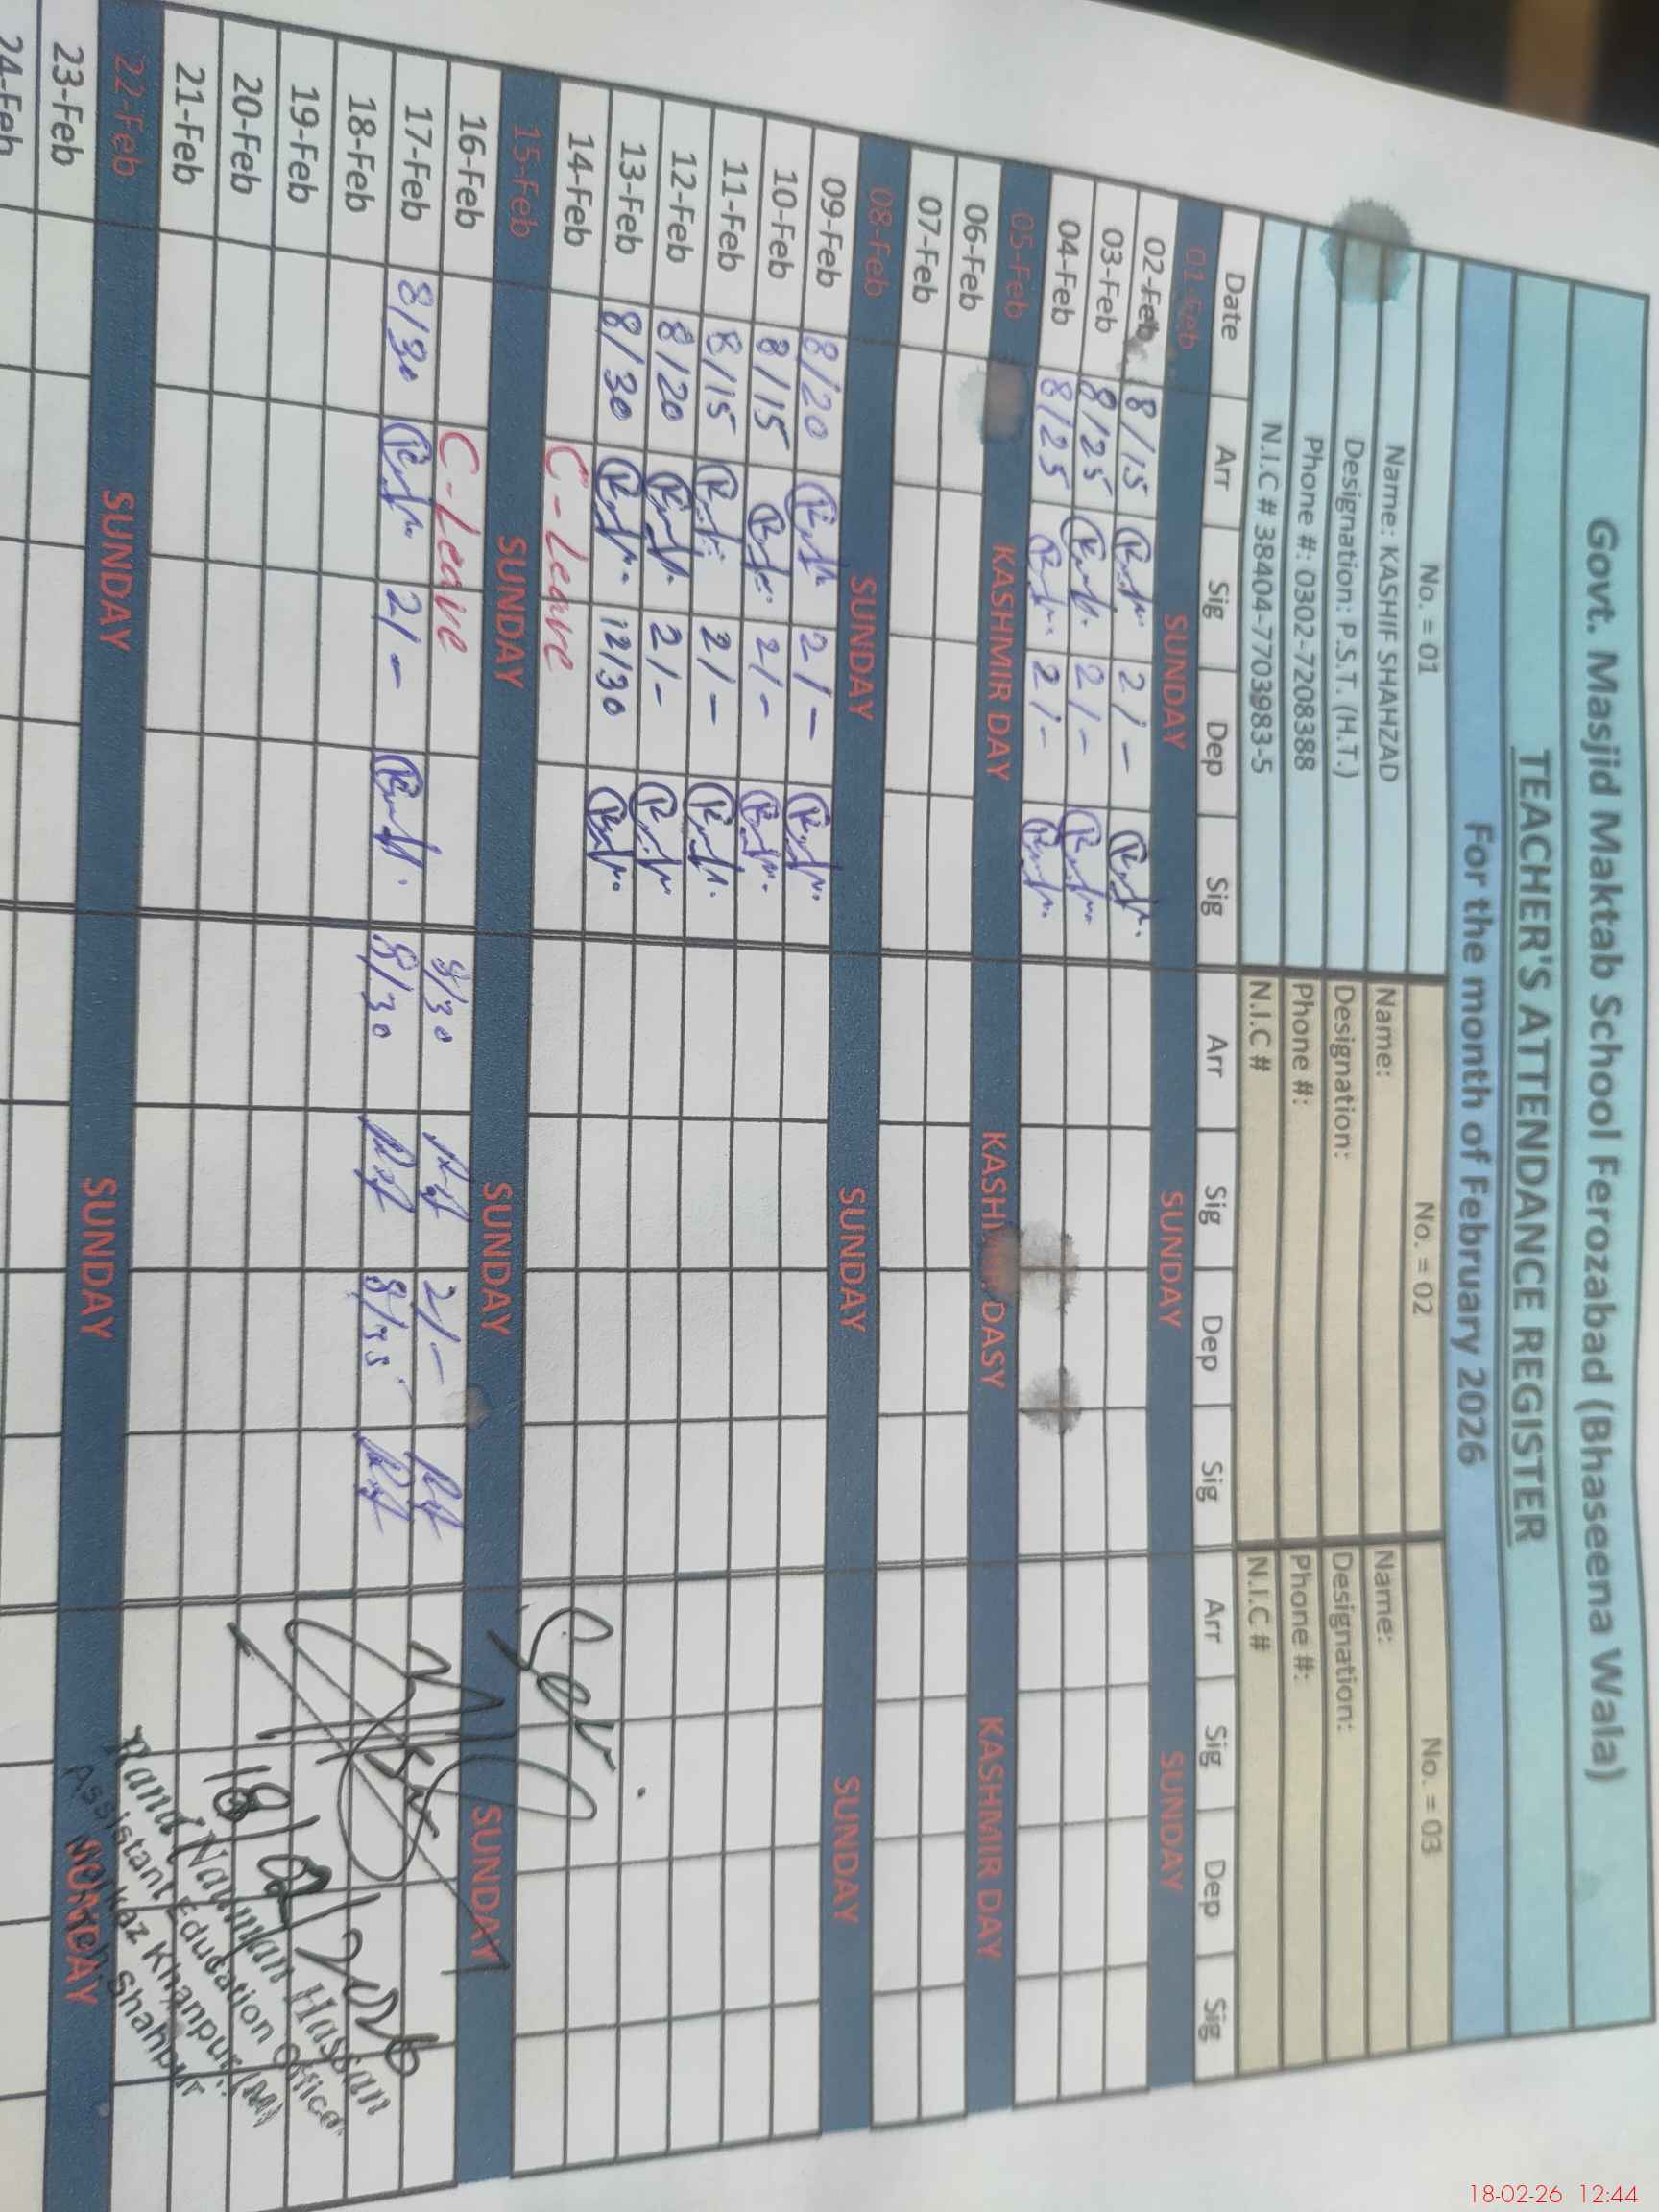 Govt. Masjid Maktab School Ferozabad (Bhaseena Wala)
TEACHER'S ATTENDANCE REGISTER
For the month of February 2026
No. = 01 No. = 02 No. = 03
Name: KASHIF SHAHZAD Name: Name:
Designation: P.S.T. (H.T.) Designation: Designation:
Phone #: 0302-7208388 Phone #: Phone #:
N.I.C # 38404-7703983-5 N.I.C # N.I.C #
Date Arr Sig Dep Sig Arr Sig Dep Sig Arr Sig Dep Sig
01-Feb SUNDAY SUNDAY SUNDAY
02-Feb 8/15 2/-
03-Feb 8/25 2/-
04-Feb 8/25 2/-
05-Feb KASHMIR DAY KASHMIR DASY KASHMIR DAY
06-Feb
07-Feb
08-Feb SUNDAY SUNDAY SUNDAY
09-Feb 8/20 2/-
10-Feb 8/15 2/-
11-Feb 8/15 2/-
12-Feb 8/20 2/-
13-Feb 8/30 12/30
14-Feb C-Leave
15-Feb SUNDAY SUNDAY SUNDAY
16-Feb C-Leave 8/30 2/-
17-Feb 8/30 2/- 8/30 8/35
18-Feb
19-Feb
20-Feb
21-Feb
22-Feb SUNDAY SUNDAY SUNDAY
23-Feb
24-Feb
18/02/2026
Rana Nauman Hassan
Assistant Education Officer
Markaz Khanpur (M)
Shahpur
18-02-26 12:44